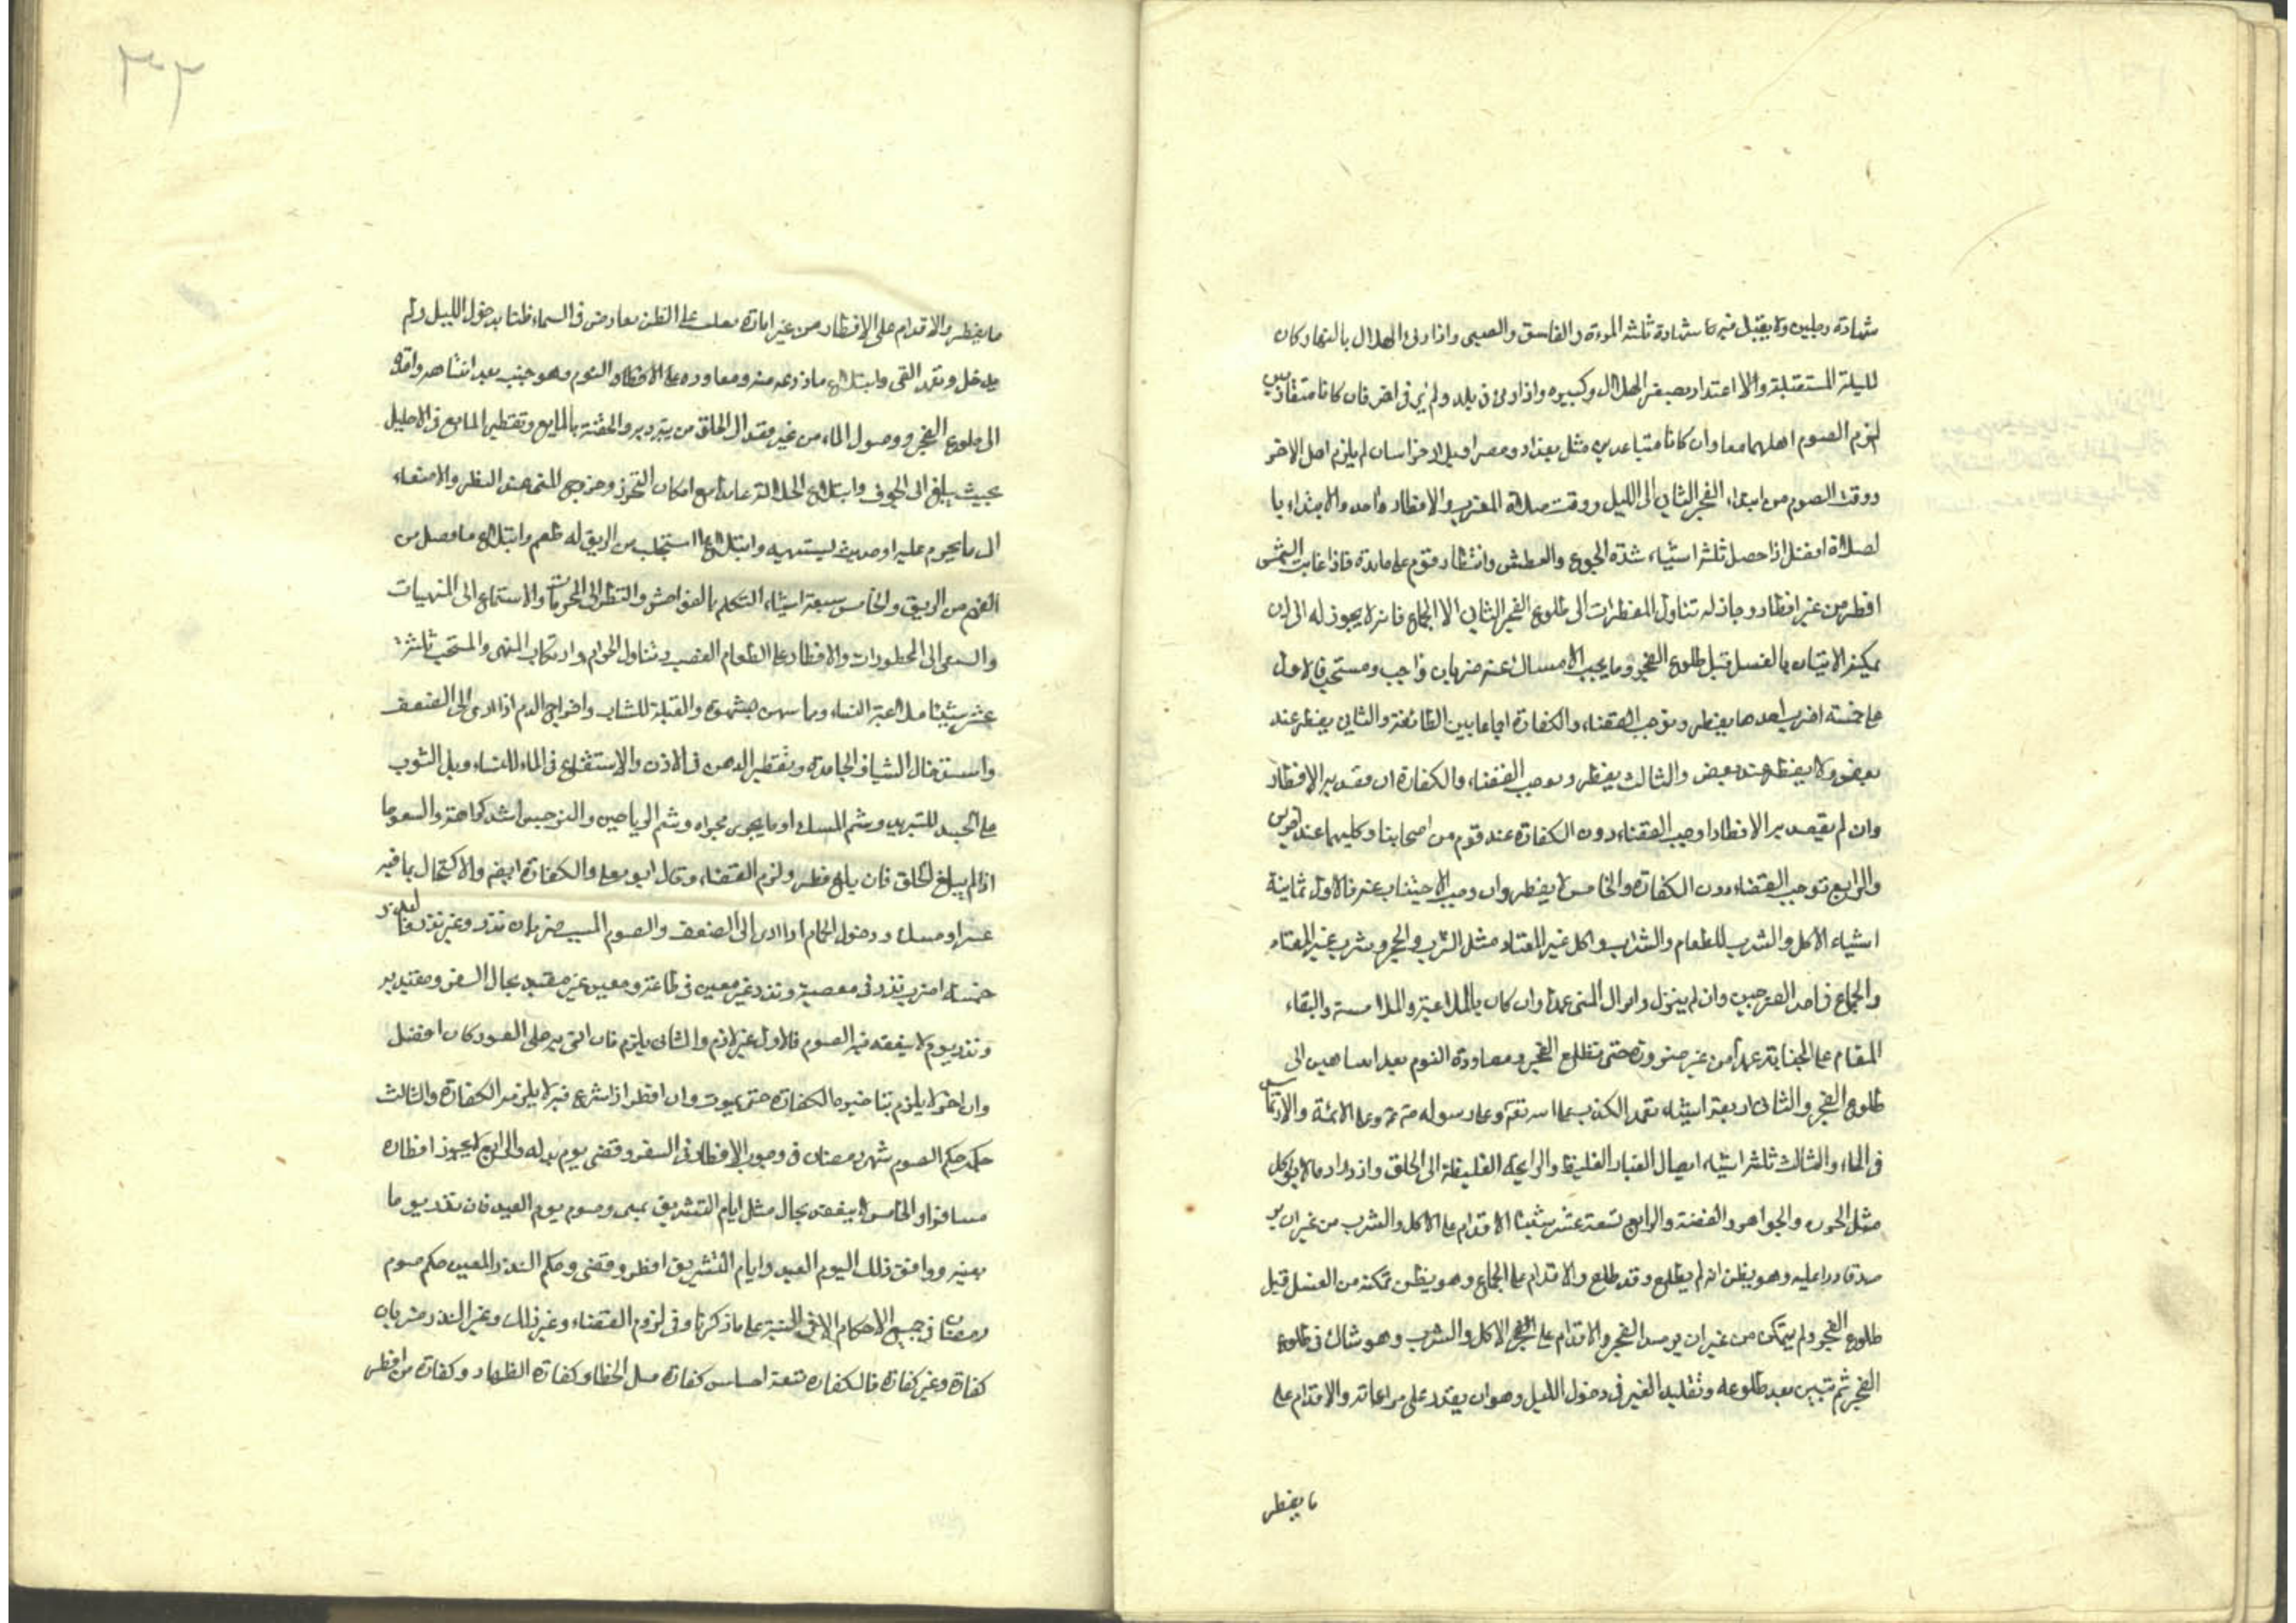 شهادة رجلين ولا يقبل فيه شهادة ثلثه المرءة والفاسق والصبى واذا رئ الهلال بالنهار كان
لليلة المستقبلة والا اعتداد بصغر الهلال وكبيره واذا رئ فى بلد ولم ير فى اخر فان كانا متقاربين
لزم الصوم اهلهما معا وان كانا متباعدين مثل بغداد ومصر او بلاد خراسان لم يلزم اهل الاخر
ووقت الصوم من ابتداء الفجر الثانى الى الليل ووقت صلاة المغرب والافطار واحد والابتداء با
لصلاة افضل اذا حصل ثلثة اشياء شدة الجوع والعطش وانتظار قوم على مائدة فاذا غابت الشمس
افطر من غير افطار وجاز له تناول المفطرات الى طلوع الفجر الثانى الا الجماع فانه لا يجوز له الى ان
يمكنه الاتيان بالغسل قبل طلوع الفجر وما يجب الامساك عنه ضربان واجب ومستحب فالاول
على خمسة اضرب احدها يفطر ويوجب القضاء والكفارة اجماعا بين الطائفة والثانى يفطر عند
بعض ولا يفطر عند بعض والثالث يفطر ويوجب القضاء والكفارة ان قصد به الافطار
وان لم يقصد به الافطار اوجب القضاء دون الكفارة عند قوم من اصحابنا وكليهما عند اخرين
والرابع توجب القضاء دون الكفارة والخامس لا يفطر وان وجب الاجتناب عنه فالاول ثمانية
اشياء الاكل والشرب للطعام والشراب واكل غير المعتاد مثل الترب والحجر وشرب غير المعتاد
والجماع فى احد الفرجين وان لم ينزل وانزال المنى عمدا وان كان بالملاعبة والملامسة والبقاء
المقام على الجنابة عمدا من غير ضرورة حتى تطلع الفجر ومعاودة النوم بعد انتباهين الى
طلوع الفجر والثانى اربعة اشياء تعمد الكذب على الله تعه وعلى رسوله وعلى الائمة والارتماس
فى الماء والثالث ثلثة اشياء ايصال الغبار الغليظ والرايحة الغليظة الى الحلق وازدراد ما لا يوكل
مثل الخرز والجواهر والفضة والرابع تسعة عشر شيئا الاقدام على الاكل والشرب من غير ان ير
صد قادرا عليه وهو يظن انه لم يطلع وقد طلع والاقدام على الجماع وهو يظن تمكنه من الغسل قبل
طلوع الفجر ولم يتمكن من غير ان يرصد الفجر والاقدام على الاكل والشرب وهو شاك فى طلوع
الفجر ثم تبين بعد طلوعه وتقليد الغير فى دخول الليل وهو ان يقدر على مراعاته والاقدام على
ما يفطر
٣٢٣
ما يفطر والاقدام على الافطار من غير امارة تغلب على الظن بعارض فى السماء ظنا بدخول الليل ولم
يدخل وتعمد القى وابتلاع ماذرعه منه ومعاودة النوم وهو جنب بعد انتباهه واقه
الى طلوع الفجر ووصول الماء من غير قصد الى الحلق من يتبرد به والحقنة بالمايع وتقطير المايع فى الاحليل
بحيث يبلغ الى الجوف وابتلاع عامدا مع امكان التحرز وخروج المنى عند النظر والاصغاء
الى ما يحرم عليه او حديث ليستهيه وابتلاع ما استجلب من الريق له طعم وابتلاع ما وصل من
الفم من الريق والخامس سبعة اشياء التكلم بالفواحش والنظر الى المحرمات والاستماع الى المنهيات
والسعى الى المحظورات والافطار على الطعام الغصب وتناول الحرام وارتكاب المنهى والمستحب ثلثة
عشر شيئا ملاعبة النساء ومباسهن بشهوة والقبلة للشاب واخراج الدم اذا ادى الى الضعف
واستدخال الشياف الجامدة وتقطير الدهن فى الاذن والاستنقاع فى الماء للنساء وبل الثوب
على الجسد للتبريد وشم المسك او ما يجرى مجراه وشم الرياحين والنرجس اشد كراهة والسعوط
اذا لم يبلغ الحلق فان بلغ فطر ولزم القضاء وقال ابو يعلى والكفارة ايضه والاكتحال بما فيه
صبر او مسك ودخول الحمام اذا ادى الى الضعف والصوم المسبب ضربان نذر وغير نذر فالنذر
خمسة اضرب نذر فى معصية ونذر غير معين فى طاعة ومعين غير مقيد بحال السفر ومقيد به
ونذر يوم لا ينعقد فيه الصوم فالاول غير لازم والثانى يلزم فان اتى به على الفور كان افضل
وان اخر لا يلزم بتاخيره الكفارة حتى يموت وان افطر اذا شرع فيه لا يلزمه الكفارة والثالث
حكمه حكم الصوم شهر رمضان فى وجوب الافطار فى السفر وقضى يوم بدله والرابع لا يجوز افطاره
مسافرا والخامس لا ينعقد بحال مثل ايام التشريق بمنى وصوم يوم العيد فان نذر يوما
بعينه ووافق ذلك اليوم العيد وايام التشريق افطر وقضى وحكم النذر المعين حكم صوم
رمضان فى جميع الاحكام الا فى النية على ما ذكرنا وفى لزوم القضاء وغير ذلك وغير النذر ضربان
كفارة وغير كفارة فالكفارة تسعة اجناس كفارة قتل الخطا وكفارة الظهار وكفارة من افطر